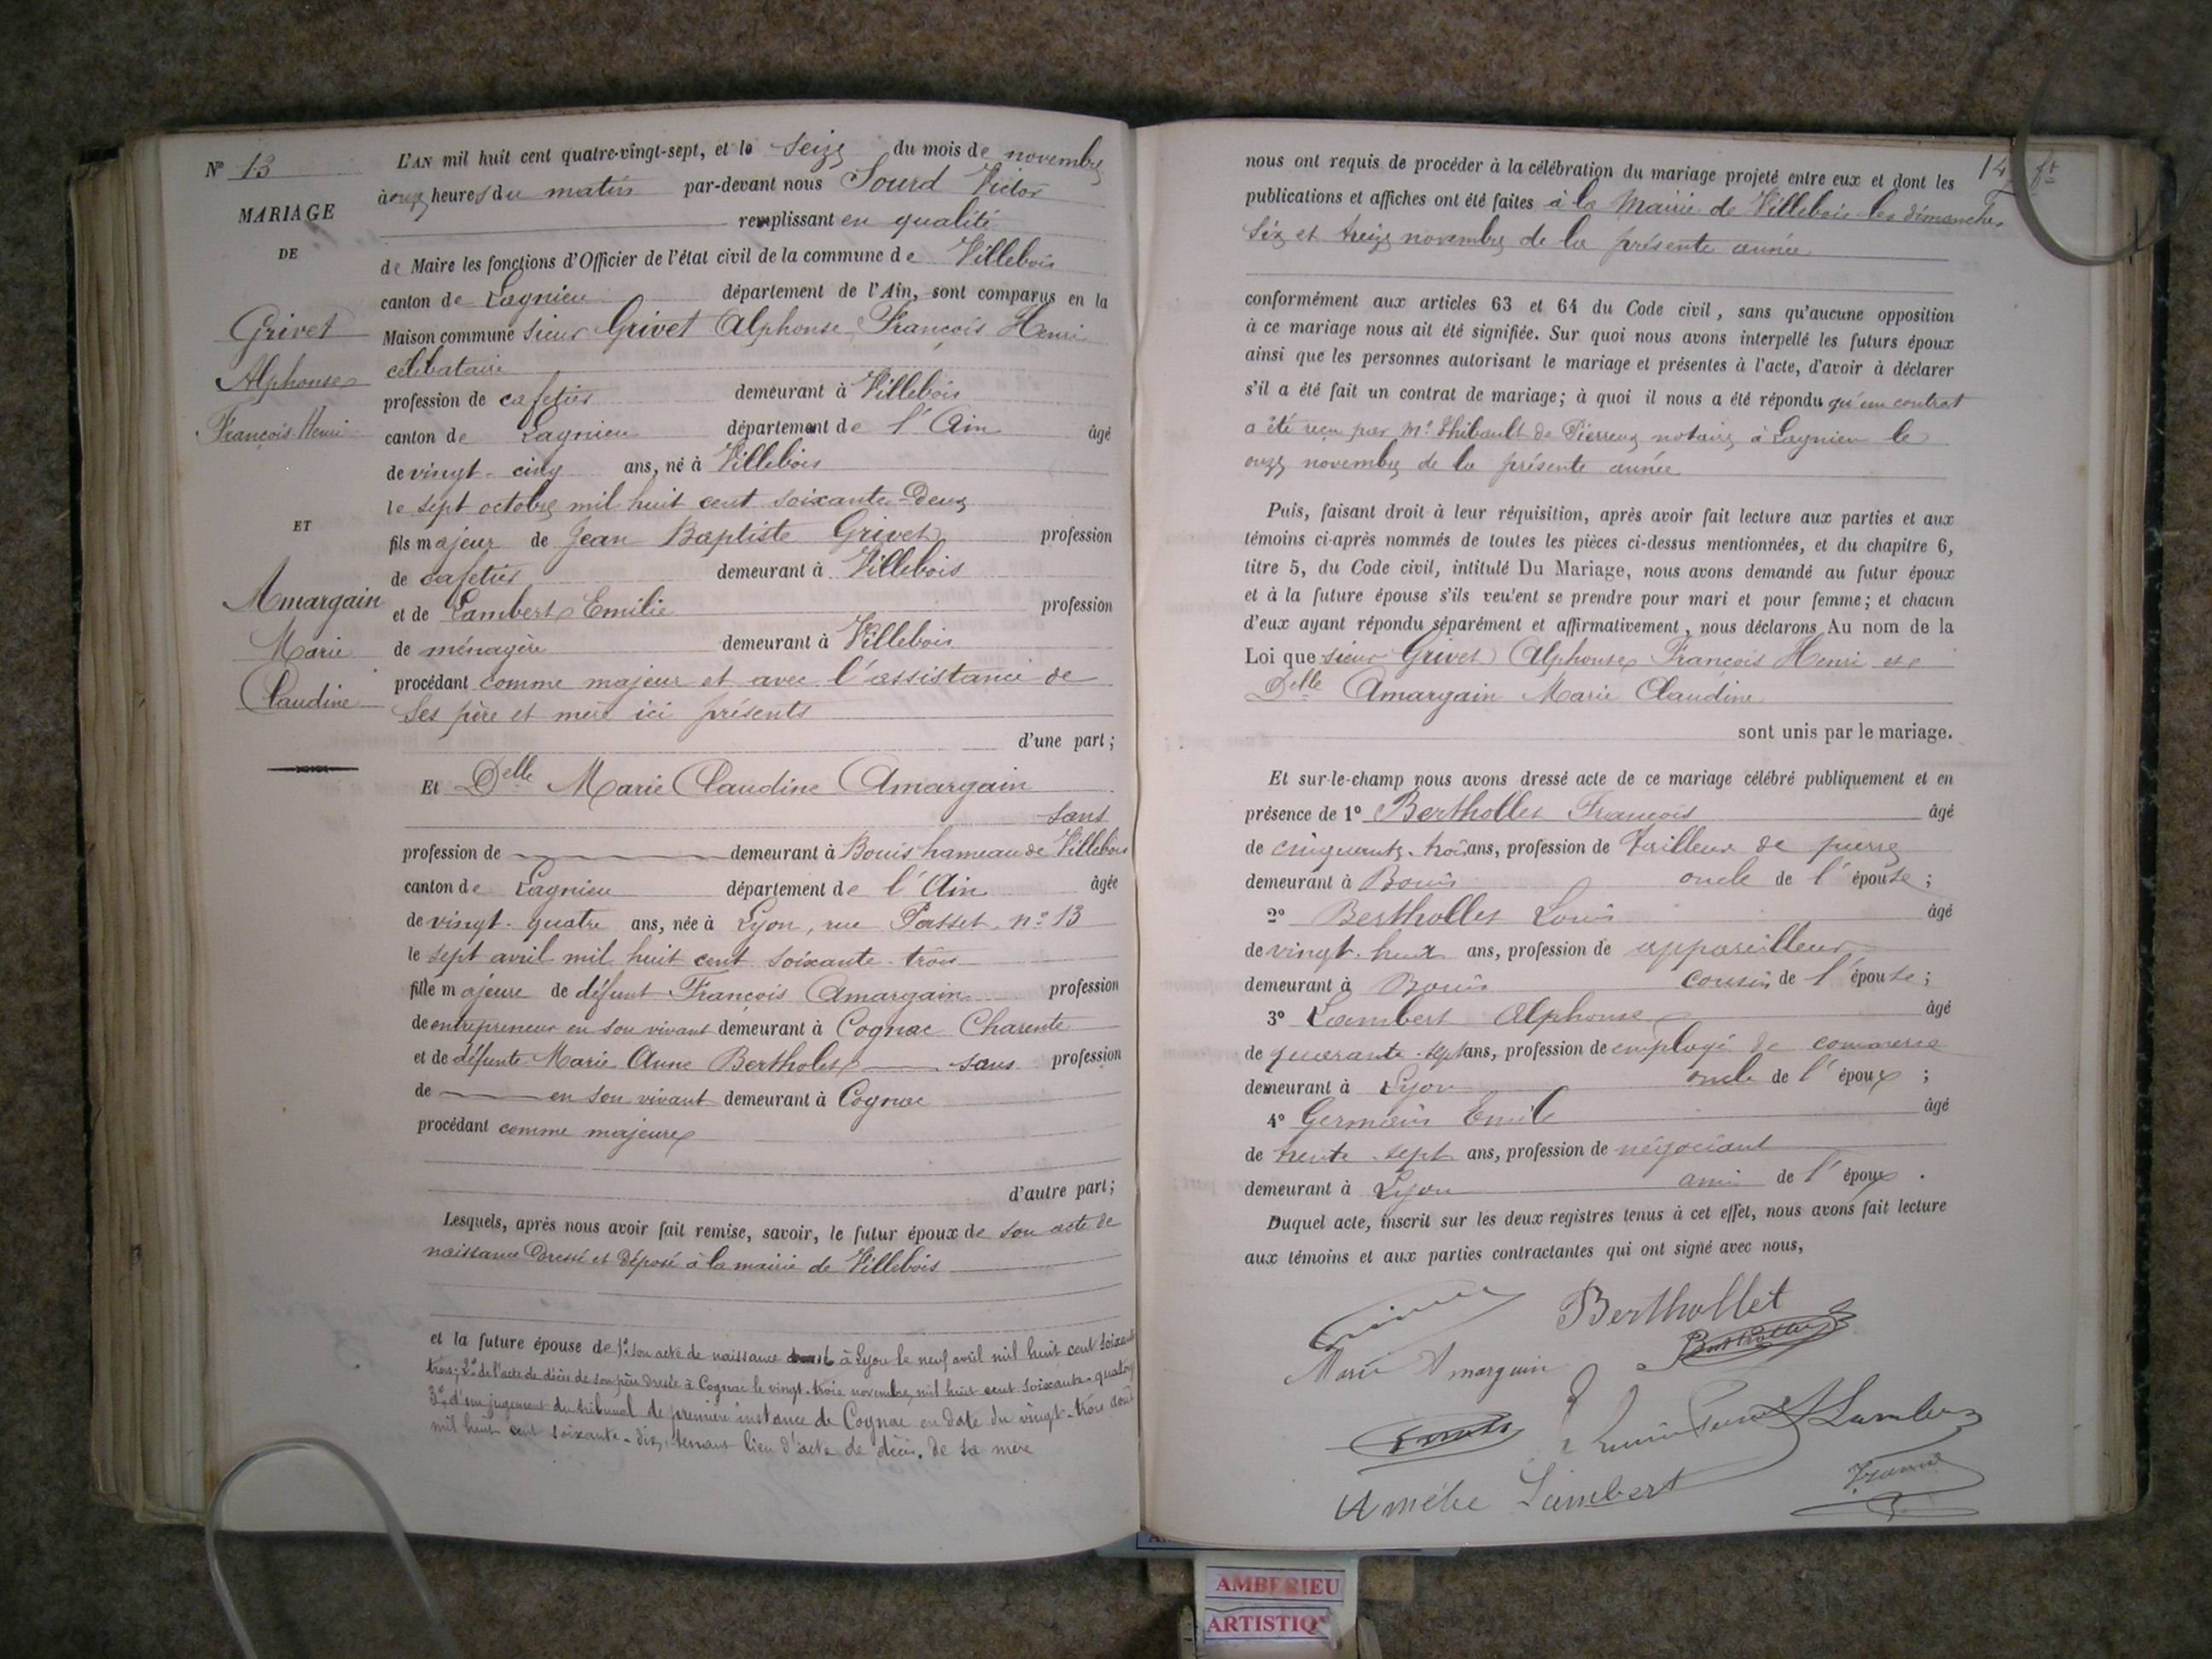 N° 13
MARIAGE
DE
Grivet
Alphonse
François Henri
ET
Amargain
Marie
Claudine
L'AN mil huit cent quatre-vingt-sept, et le seize du mois de novembre
à onze heures du matin par-devant nous Sourd Victor
remplissant en qualité
de Maire les fonctions d'Officier de l'état civil de la commune de Villebois
canton de Lagnieu département de l'Ain, sont comparus en la
Maison commune sieur Grivet Alphonse, François Henri
célibataire
profession de cafetier demeurant à Villebois
canton de Lagnieu département de l'Ain âgé
de vingt-cinq ans, né à Villebois
le sept octobre mil huit cent soixante-deux
fils majeur de Jean Baptiste Grivet profession
de cafetier demeurant à Villebois
et de Lambert Emilie profession
de ménagère demeurant à Villebois
procédant comme majeur et avec l'assistance de
ses père et mère ici présents
d'une part;
Et Delle Marie Claudine Amargain
sans
profession de demeurant à Bouis hameau de Villebois
canton de Lagnieu département de l'Ain âgée
de vingt-quatre ans, née à Lyon, rue Passet, n° 13
le sept avril mil huit cent soixante-trois
fille majeure de défunt François Amargain profession
de entrepreneur en son vivant demeurant à Cognac Charente
et de défunte Marie Anne Bertholet sans profession
de en son vivant demeurant à Cognac
procédant comme majeure
d'autre part;
Lesquels, après nous avoir fait remise, savoir, le futur époux de son acte de
naissance dressé et déposé à la mairie de Villebois
et la future épouse de 1° son acte de naissance à Lyon le neuf avril mil huit cent soixante
trois; 2° de l'acte de décès de son père dressé à Cognac le vingt-trois novembre mil huit cent soixante-quatorze
3° d'un jugement du tribunal de première instance de Cognac en date du vingt-trois août
mil huit cent soixante-dix, tenant lieu d'acte de décès de sa mère
14 ft
nous ont requis de procéder à la célébration du mariage projeté entre eux et dont les
publications et affiches ont été faites à la Mairie de Villebois les dimanches
six et treize novembre de la présente année
conformément aux articles 63 et 64 du Code civil, sans qu'aucune opposition
à ce mariage nous ait été signifiée. Sur quoi nous avons interpellé les futurs époux
ainsi que les personnes autorisant le mariage et présentes à l'acte, d'avoir à déclarer
s'il a été fait un contrat de mariage; à quoi il nous a été répondu qu'un contrat
a été reçu par Me Thibault de Pierreux notaire à Lagnieu le
onze novembre de la présente année
Puis, faisant droit à leur réquisition, après avoir fait lecture aux parties et aux
témoins ci-après nommés de toutes les pièces ci-dessus mentionnées, et du chapitre 6,
titre 5, du Code civil, intitulé Du Mariage, nous avons demandé au futur époux
et à la future épouse s'ils veulent se prendre pour mari et pour femme; et chacun
d'eux ayant répondu séparément et affirmativement, nous déclarons Au nom de la
Loi que sieur Grivet Alphonse François Henri et
Delle Amargain Marie Claudine
sont unis par le mariage.
Et sur-le-champ nous avons dressé acte de ce mariage célébré publiquement et en
présence de 1° Berthollet François âgé
de cinquante-trois ans, profession de tailleur de pierre
demeurant à Bouis oncle de l'épouse;
2° Berthollet Louis âgé
de vingt-huit ans, profession de appareilleur
demeurant à Bouis cousin de l'épouse;
3° Lambert Alphonse âgé
de quarante-sept ans, profession de employé de commerce
demeurant à Lyon oncle de l'époux;
4° Germain Emile âgé
de trente-sept ans, profession de négociant
demeurant à Lyon ami de l'époux.
Duquel acte, inscrit sur les deux registres tenus à cet effet, nous avons fait lecture
aux témoins et aux parties contractantes qui ont signé avec nous,
Berthollet
Marie Amargain
Berthollet
Lambert
Amélie Lambert
AMBERIEU
ARTISTIQ